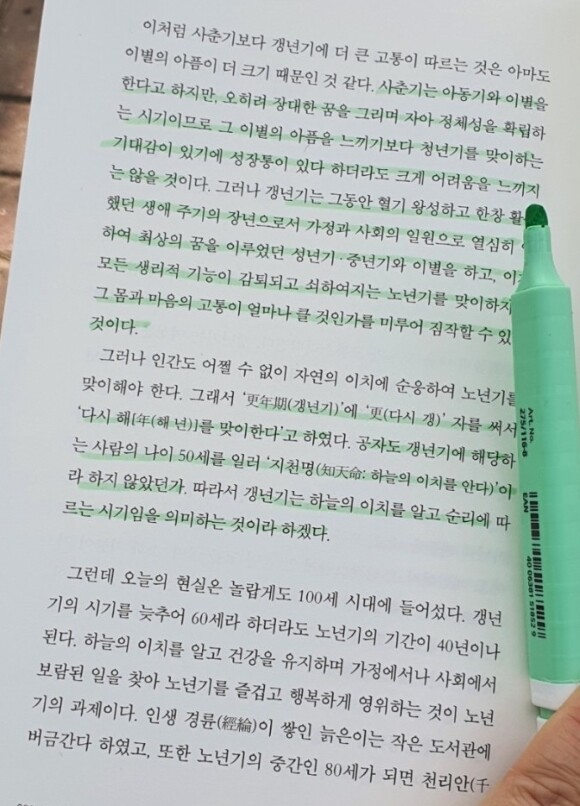 이처럼 사춘기보다 갱년기에 더 큰 고통이 따르는 것은 아마도
이별의 아픔이 더 크기 때문인 것 같다. 사춘기는 아동기와 이별을
한다고 하지만, 오히려 장대한 꿈을 그리며 자아 정체성을 확립하
는 시기이므로 그 이별의 아픔을 느끼기보다 청년기를 맞이하는
기대감이 있기에 성장통이 있다 하더라도 크게 어려움을 느끼지
는 않을 것이다. 그러나 갱년기는 그동안 혈기 왕성하고 한창
했던 생애 주기의 장년으로서 가정과 사회의 일원으로 열심히
하여 최상의 꿈을 이루었던 성년기·중년기와 이별을 하고,
모든 생리적 기능이 감퇴되고 쇠하여지는 노년기를 맞이하
그 몸과 마음의 고통이 얼마나 클 것인가를 미루어 짐작할 수 있
것이다.
그러나 인간도 어쩔 수 없이 자연의 이치에 순응하여 노년기를
맞이해야 한다. 그래서 ‘更年期(갱년기)’에 ‘更(다시 갱)’ 자를 써서
‘다시 해[年(해 년)]를 맞이한다’고 하였다. 공자도 갱년기에 해당하
는 사람의 나이 50세를 일러 ‘지천명(知天命: 하늘의 이치를 안다)’이
라 하지 않았던가. 따라서 갱년기는 하늘의 이치를 알고 순리에 따
르는 시기임을 의미하는 것이라 하겠다.
그런데 오늘의 현실은 놀랍게도 100세 시대에 들어섰다. 갱년
기의 시기를 늦추어 60세라 하더라도 노년기의 기간이 40년이나
된다. 하늘의 이치를 알고 건강을 유지하며 가정에서나 사회에서
보람된 일을 찾아 노년기를 즐겁고 행복하게 영위하는 것이 노년
기의 과제이다. 인생 경륜(經綸)이 쌓인 늙은이는 작은 도서관에
버금간다 하였고, 또한 노년기의 중간인 80세가 되면 천리안(千
Art. No.
275/116-8
EAN